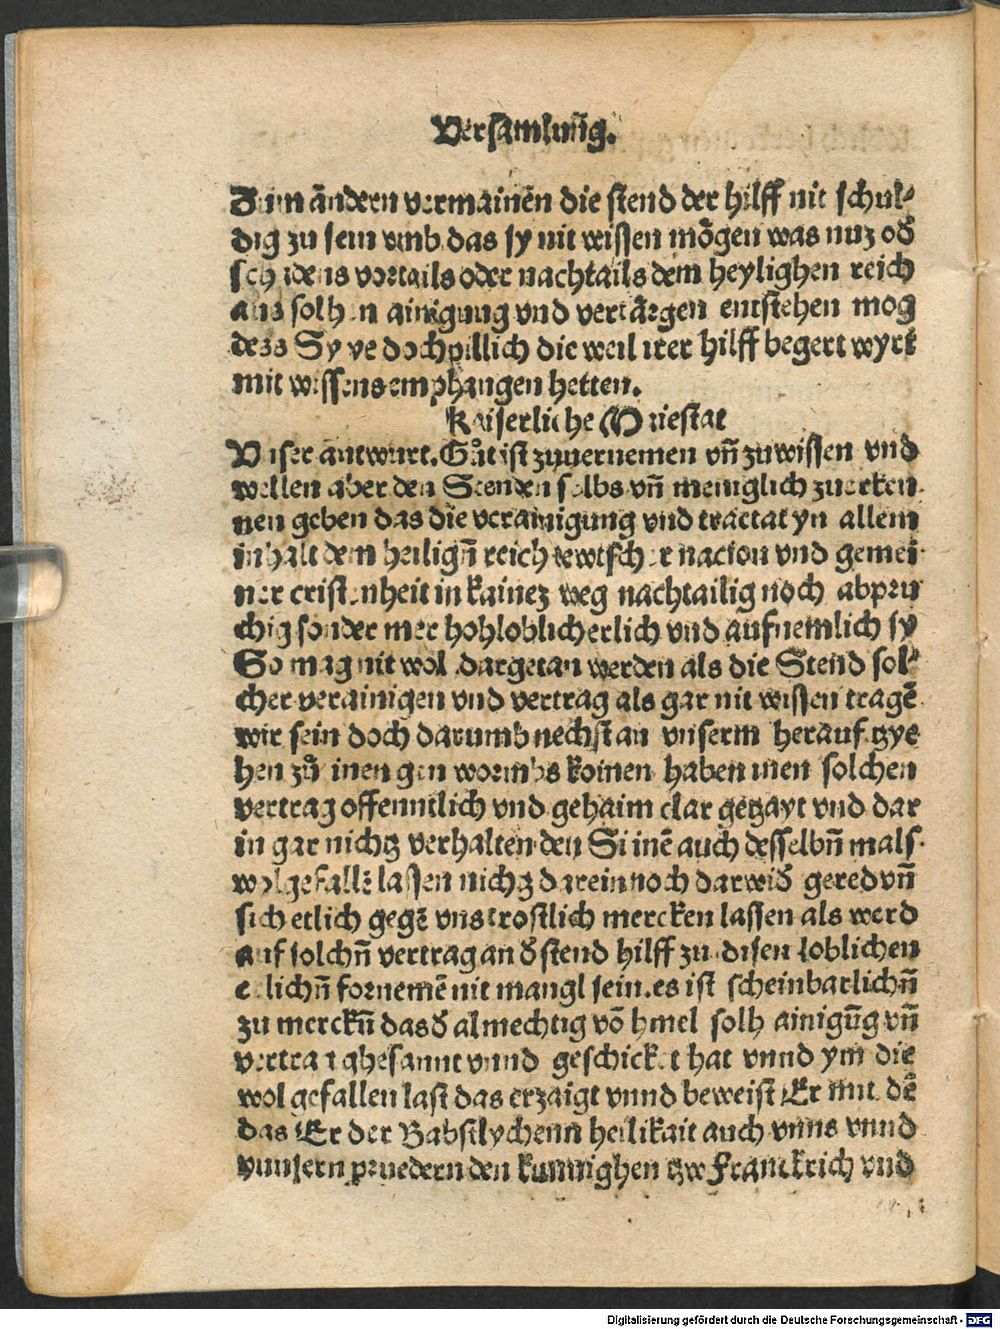 Versamlūg.
Zum ändern vermainen die stend der hilff nit schul⸗
dig zu sein vmb das sy nit wissen mögen was nuz oď
schadens vortails oder nachtails dem heylighen reich
aus solhen ainigung vnd verträgen entstehen mog
dess Sy ye doch pillich die weil irer hilff begert wyrt
mit wissens emphangen hetten.
Kaiserliche Maiestat
Vnser antwurt. Gůt ist zuuernemen vn̄ zuwissen vnd
wellen aber den Stenden selbs vn̄ meniglich zuerken
nen geben das die verainigung vnd tractat yn allem
inhalt dem heilign̄ reich tewtscher nacion vnd gemei
ner cristenheit in kainez weg nachtailig noch abpru
chig sonder mer hohloblich erlich vnd aufnemlich sy
So mag nit wol dargetan werden als die Stend sol⸗
cher verainigen vnd vertrag als gar nit wissen tragē
wir sein doch darumb nechst an vnserm herauf tzye
hen zů inen gen wormbs komen haben inen solchen
vertrag offenntlich vnd gehaim clar getzayt vnd dar
in gar nichtz verhalten den Si inē auch desselbn̄ mals
wolgefallē lassen nichtz darein noch darwiď gered vn̄
sich etlich gegē vns trostlich mercken lassen als werd
auf solchn̄ vertrag an ď stend hilff zu disen loblichen
erlichn̄ fornemē nit mangl sein. es ist scheinbarlichn̄
zu merckn̄ das ď almechtig vō hmel solh ainigūg vn̄
vertrag ghesannt vnnd geschicket hat vnnd ym die
wol gefallen last das erzaigt vnnd beweist Er mit dē
das Er der Babstlychenn heilikait auch vnns vnnd
vnnsern pruedern den kunnighen tzw Franckrich vnd
Digitalisierung gefördert durch die Deutsche Forschungsgemeinschaft - DFG